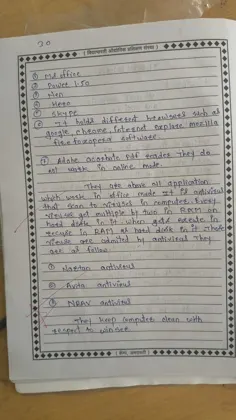 20
① Ms office
② Power ISO
③ Nero
④ Hero
⑤ Skype
⑥ It holds different browsers such as
google, chrome, internet explore, mozilla
firefoxopera software.
⑦ Adobe acorbate pdf reader They do
not work in online mode.
They are above all application
which work in office mode It is antivirus
that scan the viruses in computer. Every
virus get multiple by two in RAM on
hard disk in it, when gets execute in
rescue in RAM at hard disk in it These
viruse are admited by antiviral They
are as follow.
① Norton antivirus
② Avira antivirus
③ NPAV antivirus
They keep computer clean with
respect to viruses